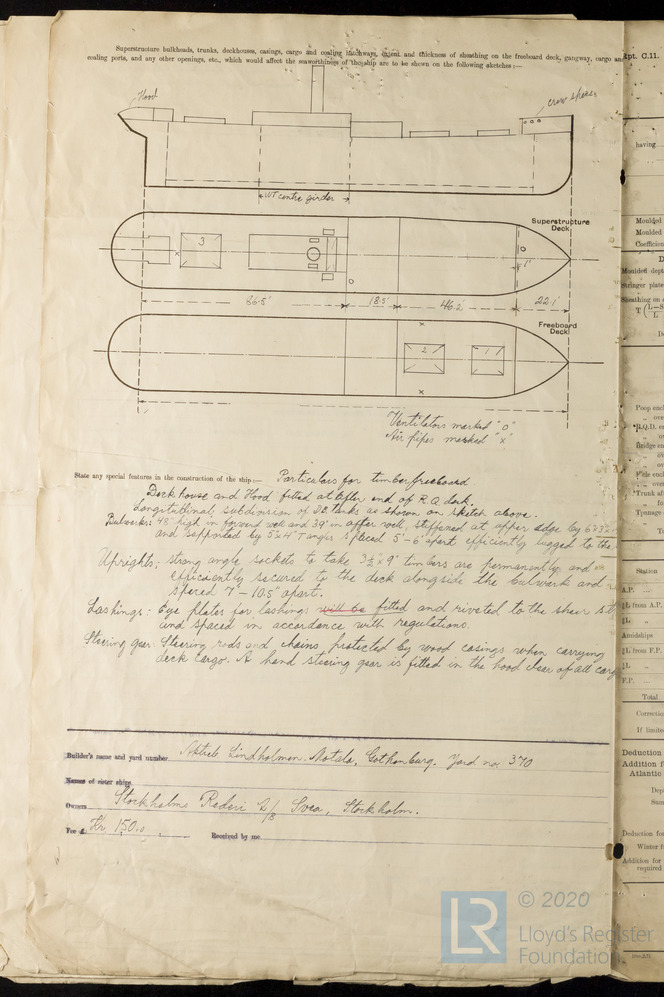 Superstructure bulkheads, trunks, deckhouses, casings, cargo and coaling hatchways, extent and thickness of sheathing on the freeboard deck, gangway, cargo and
coaling ports, and any other openings, etc., which would affect the seaworthiness of the ship are to be shown on the following sketches:—
Hood
crew spaces
WT centre girder
Superstructure
Deck
3
86.5'
18.5'
46.2'
22.1'
Freeboard
Deck
2
1
Ventilators marked "o"
Air pipes marked "x"
State any special features in the construction of the ship:— Particulars for timber freeboard
Deck house and Hood fitted at after end of R.Q. deck.
Longitudinal subdivision of D.B. tanks as shown on sketch above.
Bulwarks: 48" high in forward well and 39" in after well, stiffened at upper edge by 6"x3"
and supported by 5"x4" T angles spaced 5'-6" apart efficiently lugged to the
Uprights; strong angle sockets to take 3½"x9" timbers are permanently and
efficiently secured to the deck alongside the bulwark and
spaced 7'-10.5" apart.
Lashings: Eye plates for lashings will be fitted and riveted to the sheer st
and spaced in accordance with regulations.
Steering gear: Steering rods and chains protected by wood casings when carrying
deck cargo. A hand steering gear is fitted in the hood clear of all carg
Builder's name and yard number Lindholmen. Motala, Gothenburg. Yard no 370
Names of sister ships
Owners Stockholms Rederi A/B Svea, Stockholm.
Fee £ Kr 150.
Received by me
Rpt. C.11.
having
Moulded
Moulded
Coefficien
Moulded dept
Stringer plate
Sheathing on
Poop encl
R.Q.D. en
Bridge en
Trunk a
Tonnage
Station
A.P.
¼L from A.P.
Amidships
¼L from F.P.
F.P.
Total
Correctio
If limited
Deduction
Addition f
Atlantic
Dep
Sum
Deduction for
Winter f
Addition for
required
© 2020
LR
Lloyd's Register
Foundation